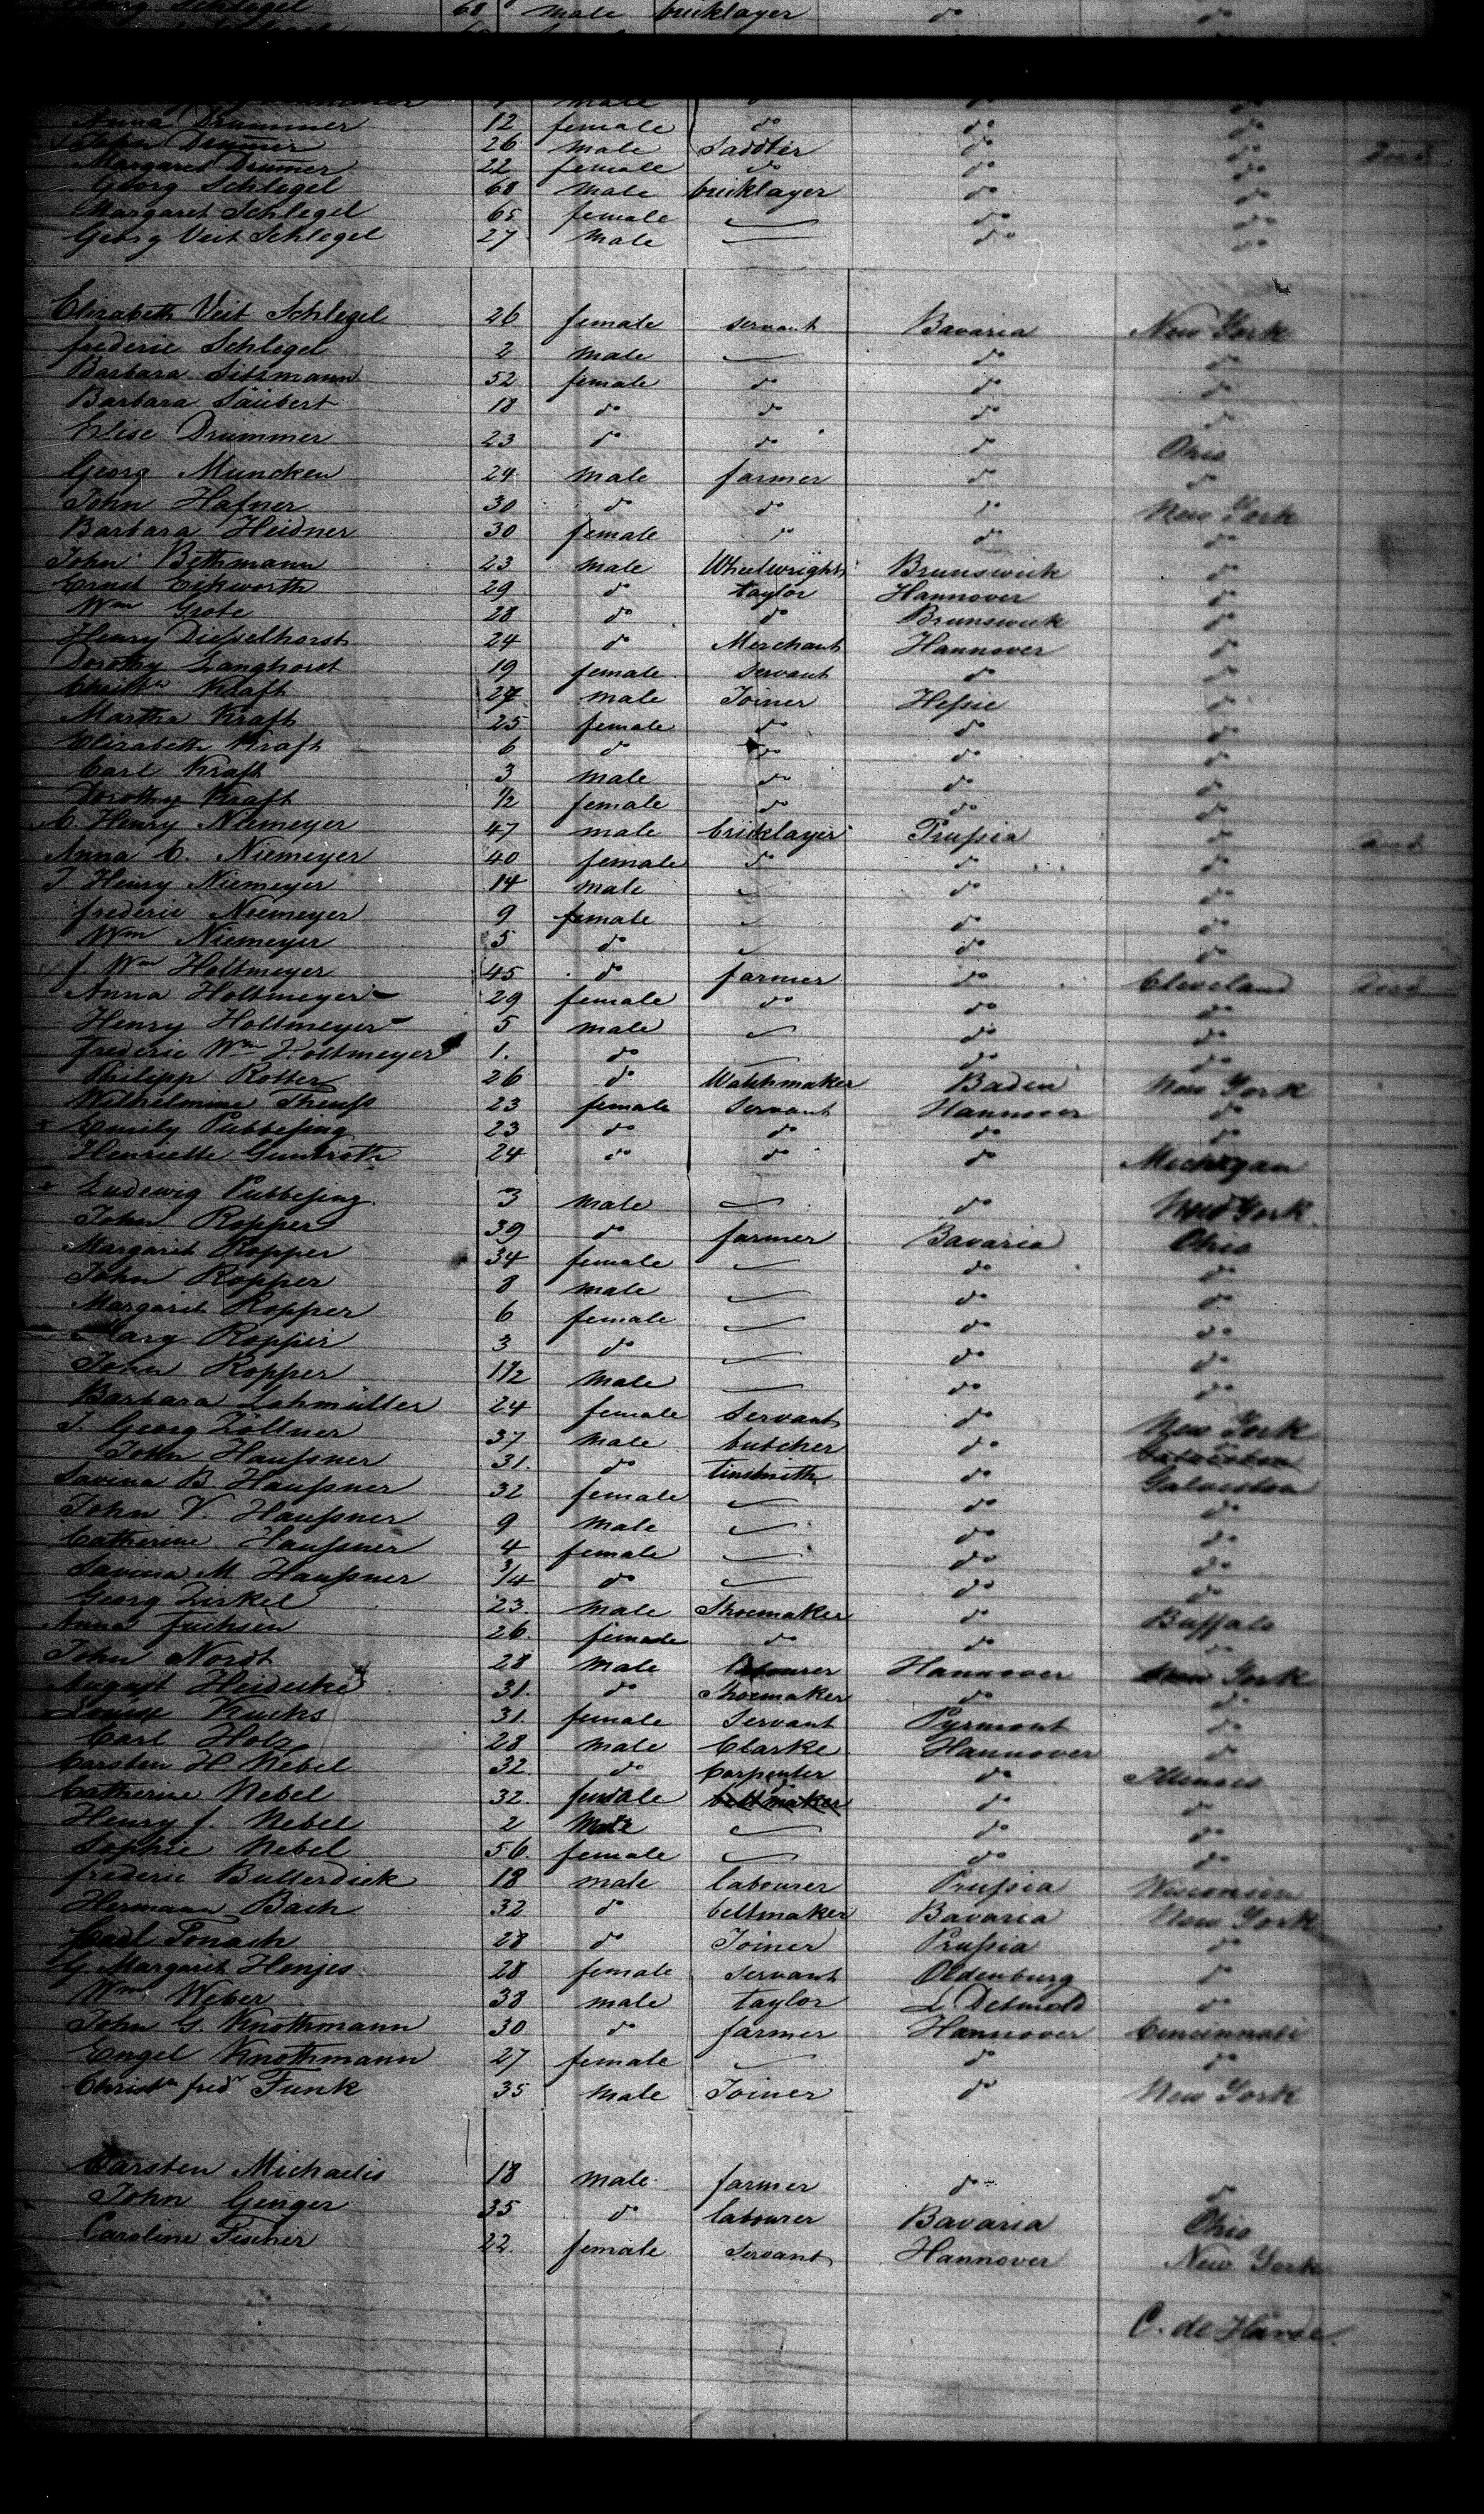 Schlegel 68 male bricklayer do do
male
Anna Drummer 12 female do do do
John Drumer 26 male Saddler do do
Margaret Drumer 22 female do do do
Georg Schlegel 68 male bricklayer do do
Margaret Schlegel 65 female do do
Georg Veit Schlegel 27 male do do
Elizabeth Veit Schlegel 26 female servant Bavaria New York
frederic Schlegel 2 male do do
Barbara Sitzmann 52 female do do do
Barbara Säubert 18 do do do do
Elise Drummer 23 do do do Ohio
Georg Muncken 24 male farmer do do
John Hafner 30 do do do New York
Barbara Heidner 30 female do do do
John Bethmann 23 male Wheelwright Brunswick do
Ernst Eikworth 29 do taylor Hannover do
Wm Grote 28 do do Brunswick do
Henry Dießelhorst 24 do Merchant Hannover do
Dorothy Langhorst 19 female servant do do
Christn Kraft 27 male Joiner Heßie do
Martha Kraft 25 female do do do
Elizabeth Kraft 6 do do do do
Carl Kraft 3 male do do do
Dorothy Kraft 1/2 female do do do
C. Henry Niemeyer 47 male bricklayer Prußia do
Anna C. Niemeyer 40 female do do do
J Henry Niemeyer 14 male do do
frederic Niemeyer 9 female do do
Wm Niemeyer 5 do do do
f. Wm Holtmeyer 45 do farmer do Cleveland
Anna Holtmeyer 29 female do do do
Henry Holtmeyer 5 male do do
frederic Wm Holtmeyer 1. do do do
Philipp Rotter 26 do Watchmaker Baden New York
Wilhelmine Theuß 23 female servant Hannover do
Emily Pubbeßing 23 do do do do
Henriette Guntroth 24 do do do Michigan
Ludewig Pubbeßing 3 male do New York
John Ropper 39 do farmer Bavaria Ohio
Margaret Ropper 34 female do do
John Ropper 8 male do do
Margaret Ropper 6 female do do
Mary Ropper 3 do do do
John Ropper 1 1/2 male do do
Barbara Lohmüller 24 female Servant do New York
J. Georg Zöllner 37 male butcher do
John Haußner 31. do tinsmith do Galveston
Savina B. Haußner 32 female do do
John V. Haußner 9 male do do
Catherine Haußner 4 female do do
Savina M Haußner 3/4 do do do
Georg Zirkel 23. male Shoemaker do Buffalo
Anna Fuchsen 26. female do do do
John Nordt 28 male labourer Hannover New York
August Heidecke 31. do Shoemaker do do
Louise Kucks 31. female Servant Pyrmont do
Carl Holz 28 male Clarke Hannover do
Carsten H Nebel 32. do Carpenter do Illinois
Catherine Nebel 32. female beltmaker do do
Henry f. Nebel 2 Male do do
Sophie Nebel 56. female do do
frederic Butterdick 18 male labourer Prußia Wisconsin
Hermann Bach 32 do beltmaker Bavaria New York
Carl Tonach 28 do Joiner Prußia do
G. Margaret Henjes 28 female servant Oldenburg do
Wm Weber 38 male taylor L. Detmold do
John G. Knothmann 30 do farmer Hannover Cincinnati
Engel Knothmann 27 female do do
Christn fredr Funk 35 male Joiner do New York
Carsten Michaelis 18 male farmer do do
John Genger 35 do labourer Bavaria Ohio
Caroline Fischer 22. female servant Hannover New York
C. de Harde.